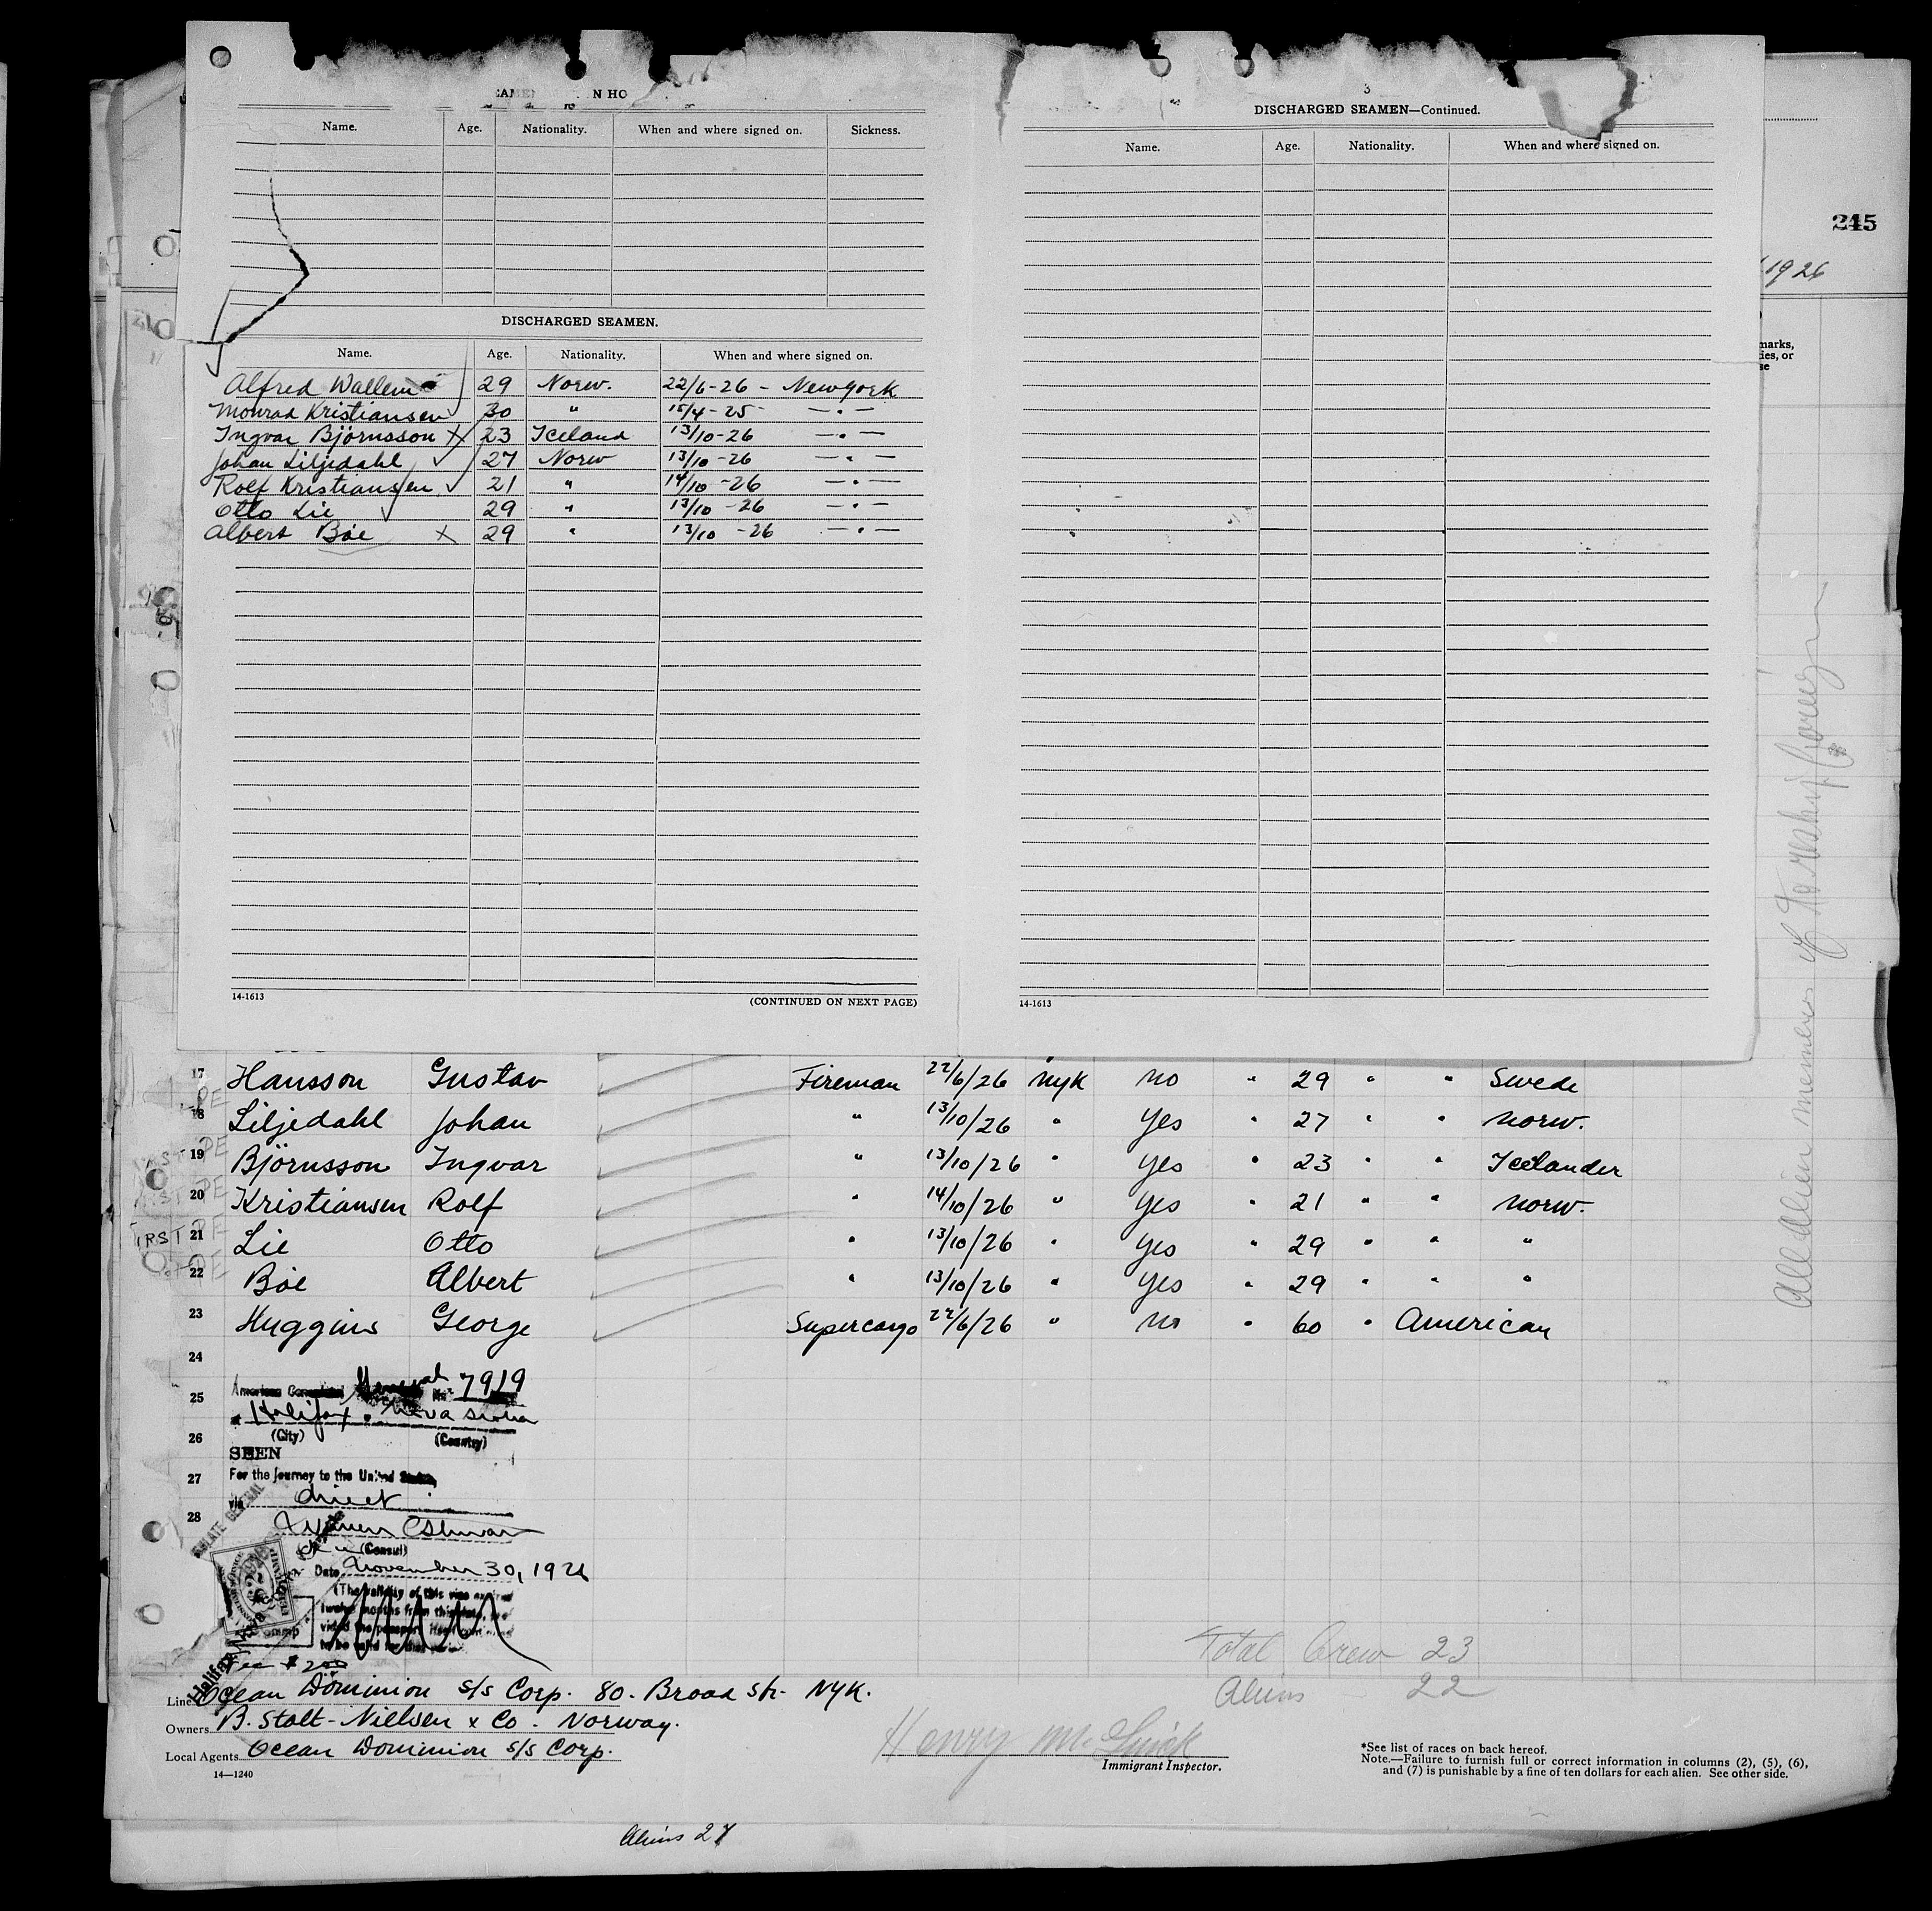 N HO
Name. Age. Nationality. When and where signed on. Sickness.
DISCHARGED SEAMEN.
Name. Age. Nationality. When and where signed on.
Alfred Wallem 29 Norw. 22/6-26 - New York
Monrad Kristiansen 30 " 15/4-25 —"—
Ingvar Björnsson X 23 Iceland 13/10-26 —"—
Johan Liljedahl 27 Norw 13/10-26 —"—
Rolf Kristiansen 21 " 14/10-26 —"—
Otto Lie 29 " 13/10-26 —"—
Albert Böe X 29 " 13/10-26 —"—
14-1613 (CONTINUED ON NEXT PAGE)
3
DISCHARGED SEAMEN—Continued.
Name. Age. Nationality. When and where signed on.
14-1613
245
1926
marks,
ies, or
se
17 Hansson Gustav Fireman 22/6/26 NYK no " 29 " " Swede
18 Liljedahl Johan " 13/10/26 " Yes " 27 " " Norw.
19 Björnsson Ingvar " 13/10/26 " Yes " 23 " " Icelander
20 Kristiansen Rolf " 14/10/26 " Yes " 21 " " Norw.
21 Lie Otto " 13/10/26 " Yes " 29 " " "
22 Böe Albert " 13/10/26 " Yes " 29 " " "
23 Huggins George Supercargo 22/6/26 " no " 60 " American
24
25
26
27
28
American General No. 7919
Halifax, Nova Scotia
(City) (Country)
SEEN
For the journey to the United States
via direct
(Consul)
Date November 30, 1926
Fee $2.00
Total Crew 23
Aliens 22
Line Ocean Dominion s/s Corp. 80. Broad Str. NYK.
Owners B. Stolt-Nielsen & Co. Norway.
Local Agents Ocean Dominion s/s Corp.
14—1240
Henry
Immigrant Inspector.
*See list of races on back hereof.
Note.—Failure to furnish full or correct information in columns (2), (5), (6),
and (7) is punishable by a fine of ten dollars for each alien. See other side.
Aliens 27
All alien members of